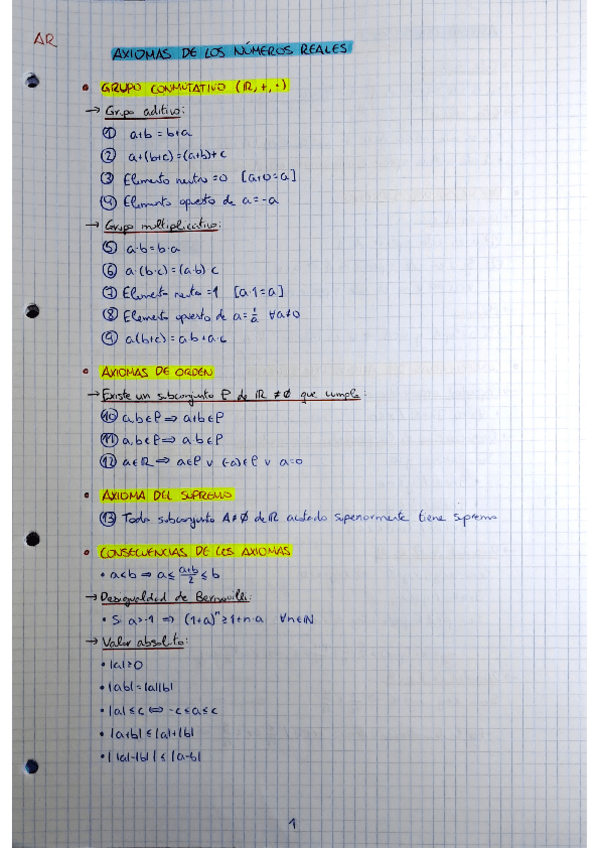 AR
AXIOMAS DE LOS NÚMEROS REALES
• GRUPO CONMUTATIVO (ℝ, +, ·)
→ Grupo aditivo:
① a+b=b+a
② a+(b+c)=(a+b)+c
③ Elemento neutro =0 [a+0=a]
④ Elemento opuesto de a=-a
→ Grupo multiplicativo:
⑤ a·b=b·a
⑥ a·(b·c)=(a·b)·c
⑦ Elemento neutro =1 [a·1=a]
⑧ Elemento opuesto de a=1/a ∀a≠0
⑨ a(b+c)=a·b+a·c
• AXIOMAS DE ORDEN
→ Existe un subconjunto P de ℝ ≠∅ que cumple:
⑩ a,b∈P ⇒ a+b∈P
⑪ a,b∈P ⇒ a·b∈P
⑫ a∈ℝ ⇒ a∈P ∨ (-a)∈P ∨ a=0
• AXIOMA DEL SUPREMO
⑬ Todo subconjunto A≠∅ de ℝ acotado superiormente tiene supremo
• CONSECUENCIAS DE LES AXIOMAS
• a<b ⇒ a≤ (a+b)/2 ≤b
→ Desigualdad de Bernouilli:
• Si a>-1 ⇒ (1+a)ⁿ≥1+n·a ∀n∈ℕ
→ Valor absoluto:
• |a|≥0
• |ab|=|a||b|
• |a|≤c ⇔ -c≤a≤c
• |a+b|≤|a|+|b|
• ||a|-|b||≤|a-b|
1